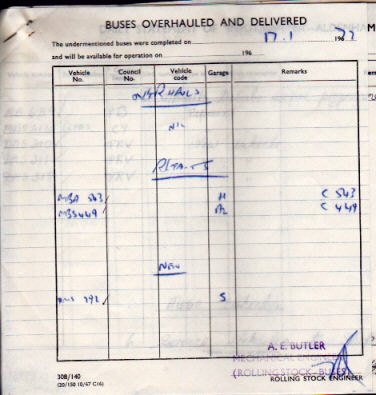 BUSES OVERHAULED AND DELIVERED
The undermentioned buses were completed on 17.1 196
and will be available for operation on 196
Vehicle No. Council No. Vehicle code Garage Remarks
OVERHAULS
NIL
REPAINTS
MBA 543 H C 543
MBS 449 C 449
NEW
292 S
A. E. BUTLER
MECHANICAL ENGINEER
(ROLLING STOCK—BUSES)
ROLLING STOCK ENGINEER
308/140
(20/150 10/67 C16)